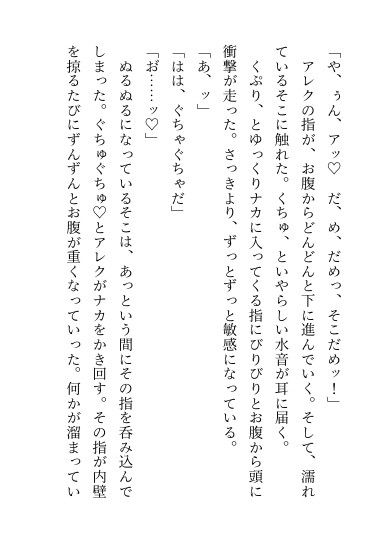 「や、ぅん、アッ♡　だ、め、だめっ、そこだめッ！」
　アレクの指が、お腹からどんどんと下に進んでいく。そして、濡れ
ているそこに触れた。くちゅ、といやらしい水音が耳に届く。
　くぷり、とゆっくりナカに入ってくる指にびりびりとお腹から頭に
衝撃が走った。さっきより、ずっとずっと敏感になっている。
「あ、ッ」
「はは、ぐちゃぐちゃだ」
「お゛……ッ♡」
　ぬるぬるになっているそこは、あっという間にその指を呑み込んで
しまった。ぐちゅぐちゅ♡とアレクがナカをかき回す。その指が内壁
を掠るたびにずんずんとお腹が重くなっていった。何かが溜まってい